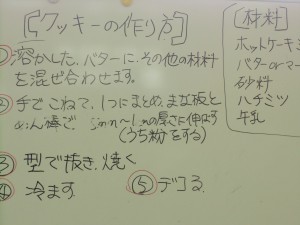 [クッキーの作り方]
①溶かしたバターに、その他の材料
を混ぜ合わせます。
②手でこねて、1つにまとめ、まな板と
めん棒で、5mm〜1cmの厚さに伸ばす
(うち粉をする)
③型で抜き、焼く
④冷ます
⑤デコる
[材料]
ホットケーキミ
バターorマー
砂糖
ハチミツ
牛乳